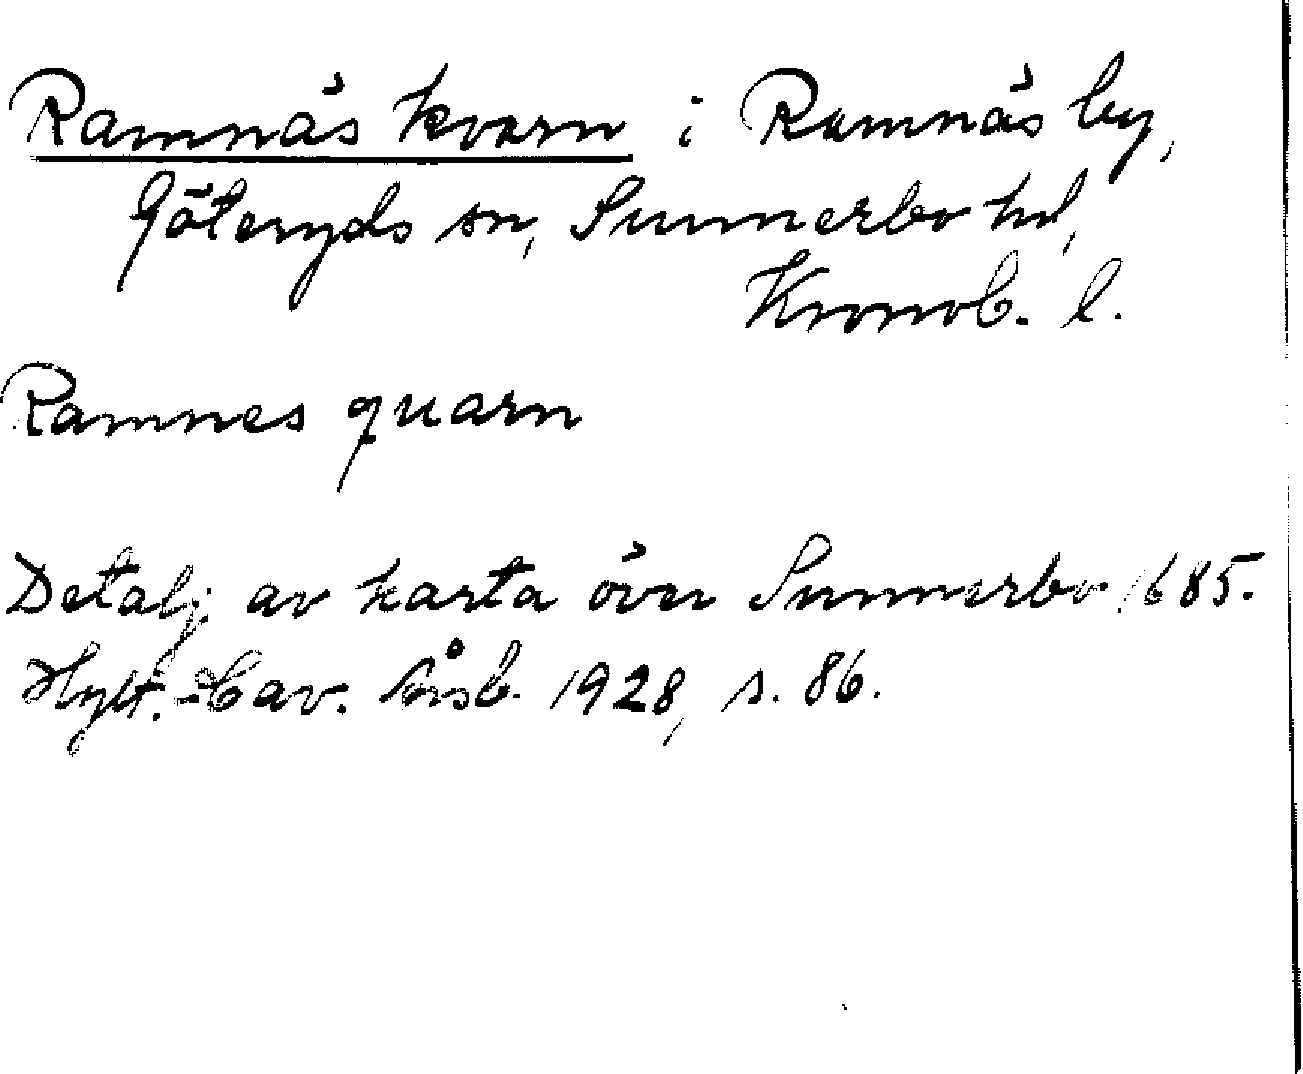 Ramnäs kvarn i Ramnäs by,
Göteryds sn, Sunnerbo hd,
Kronob. l.
Ramnes quarn
Detalj av karta över Sunnerbo 1685.
Hylt.-Cav. årsb. 1928, s. 86.